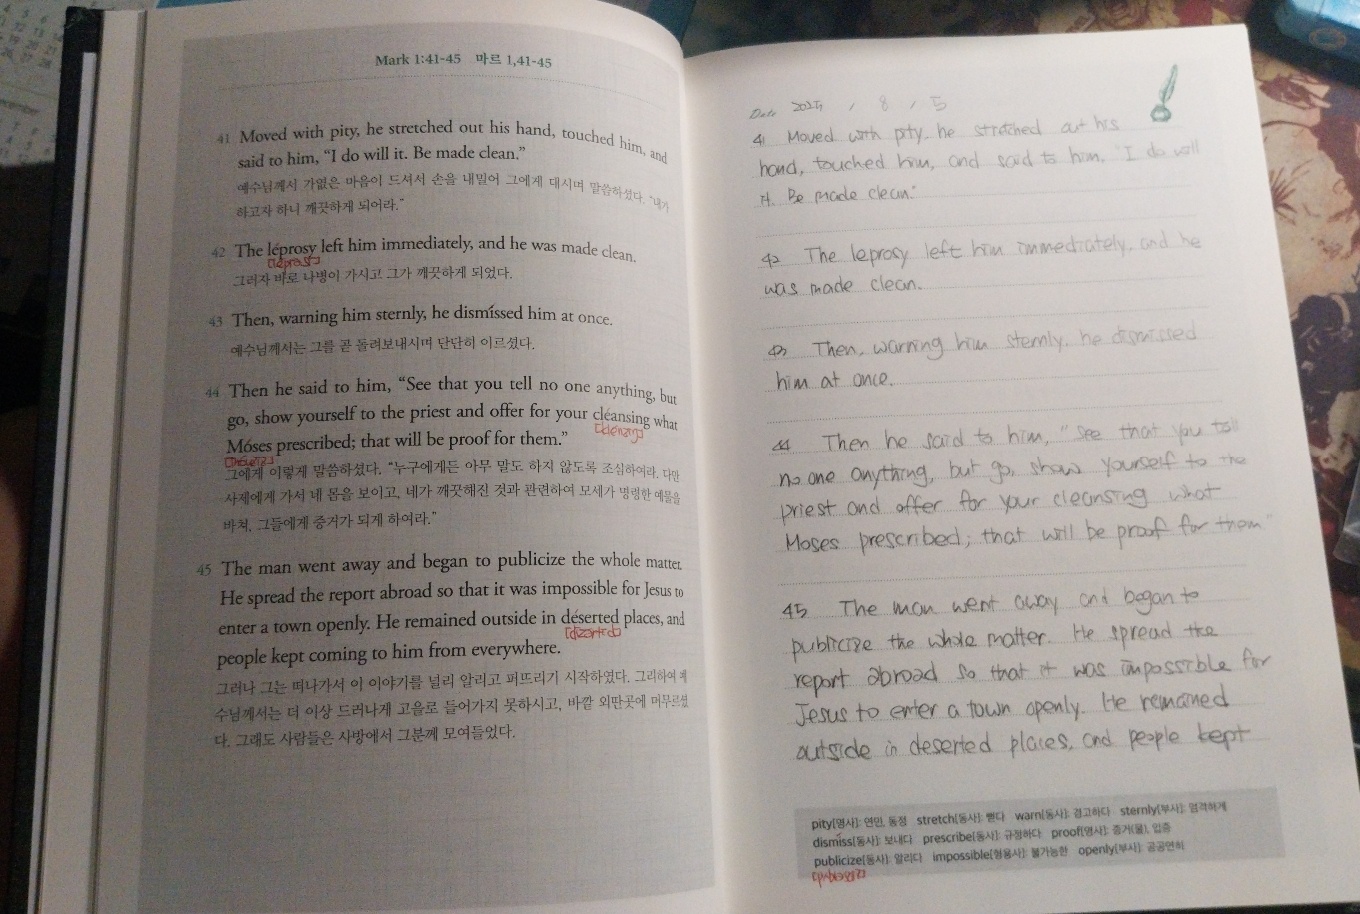 Mark 1:41-45 마르 1,41-45
41 Moved with pity, he stretched out his hand, touched him, and
said to him, “I do will it. Be made clean.”
예수님께서 가엾은 마음이 드셔서 손을 내밀어 그에게 대시며 말씀하셨다. “내가
하고자 하니 깨끗하게 되어라.”
42 The léprosy left him immediately, and he was made clean.
그러자 바로 나병이 가시고 그가 깨끗하게 되었다.
43 Then, warning him sternly, he dismíssed him at once.
예수님께서는 그를 곧 돌려보내시며 단단히 이르셨다.
44 Then he said to him, “See that you tell no one anything, but
go, show yourself to the priest and offer for your cléansing what
Móses prescribed; that will be proof for them.”
그에게 이렇게 말씀하셨다. “누구에게든 아무 말도 하지 않도록 조심하여라. 다만
사제에게 가서 네 몸을 보이고, 네가 깨끗해진 것과 관련하여 모세가 명령한 예물을
바쳐, 그들에게 증거가 되게 하여라.”
45 The man went away and began to publicize the whole matter.
He spread the report abroad so that it was impossible for Jesus to
enter a town openly. He remained outside in déserted places, and
people kept coming to him from everywhere.
그러나 그는 떠나가서 이 이야기를 널리 알리고 퍼뜨리기 시작하였다. 그리하여 예
수님께서는 더 이상 드러나게 고을로 들어가지 못하시고, 바깥 외딴곳에 머무르셨
다. 그래도 사람들은 사방에서 그분께 모여들었다.
Date / 8 / 5
41 Moved with pity, he stretched out his
hand, touched him, and said to him, "I do will
it. Be made clean."
42 The leprosy left him immediately, and he
was made clean.
43 Then, warning him sternly, he dismissed
him at once.
44 Then he said to him, "See that you tell
no one anything, but go, show yourself to the
priest and offer for your cleansing what
Moses prescribed; that will be proof for them"
45 The man went away and began to
publicize the whole matter. He spread the
report abroad so that it was impossible for
Jesus to enter a town openly. He remained
outside in deserted places, and people kept
pity[명사]: 연민, 동정 stretch[동사]: 뻗다 warn[동사]: 경고하다 sternly[부사]: 엄격하게
dismíss[동사]: 보내다 prescribe[동사]: 규정하다 proof[명사]: 증거(물), 입증
publicize[동사]: 알리다 impossible[형용사]: 불가능한 openly[부사]: 공공연히